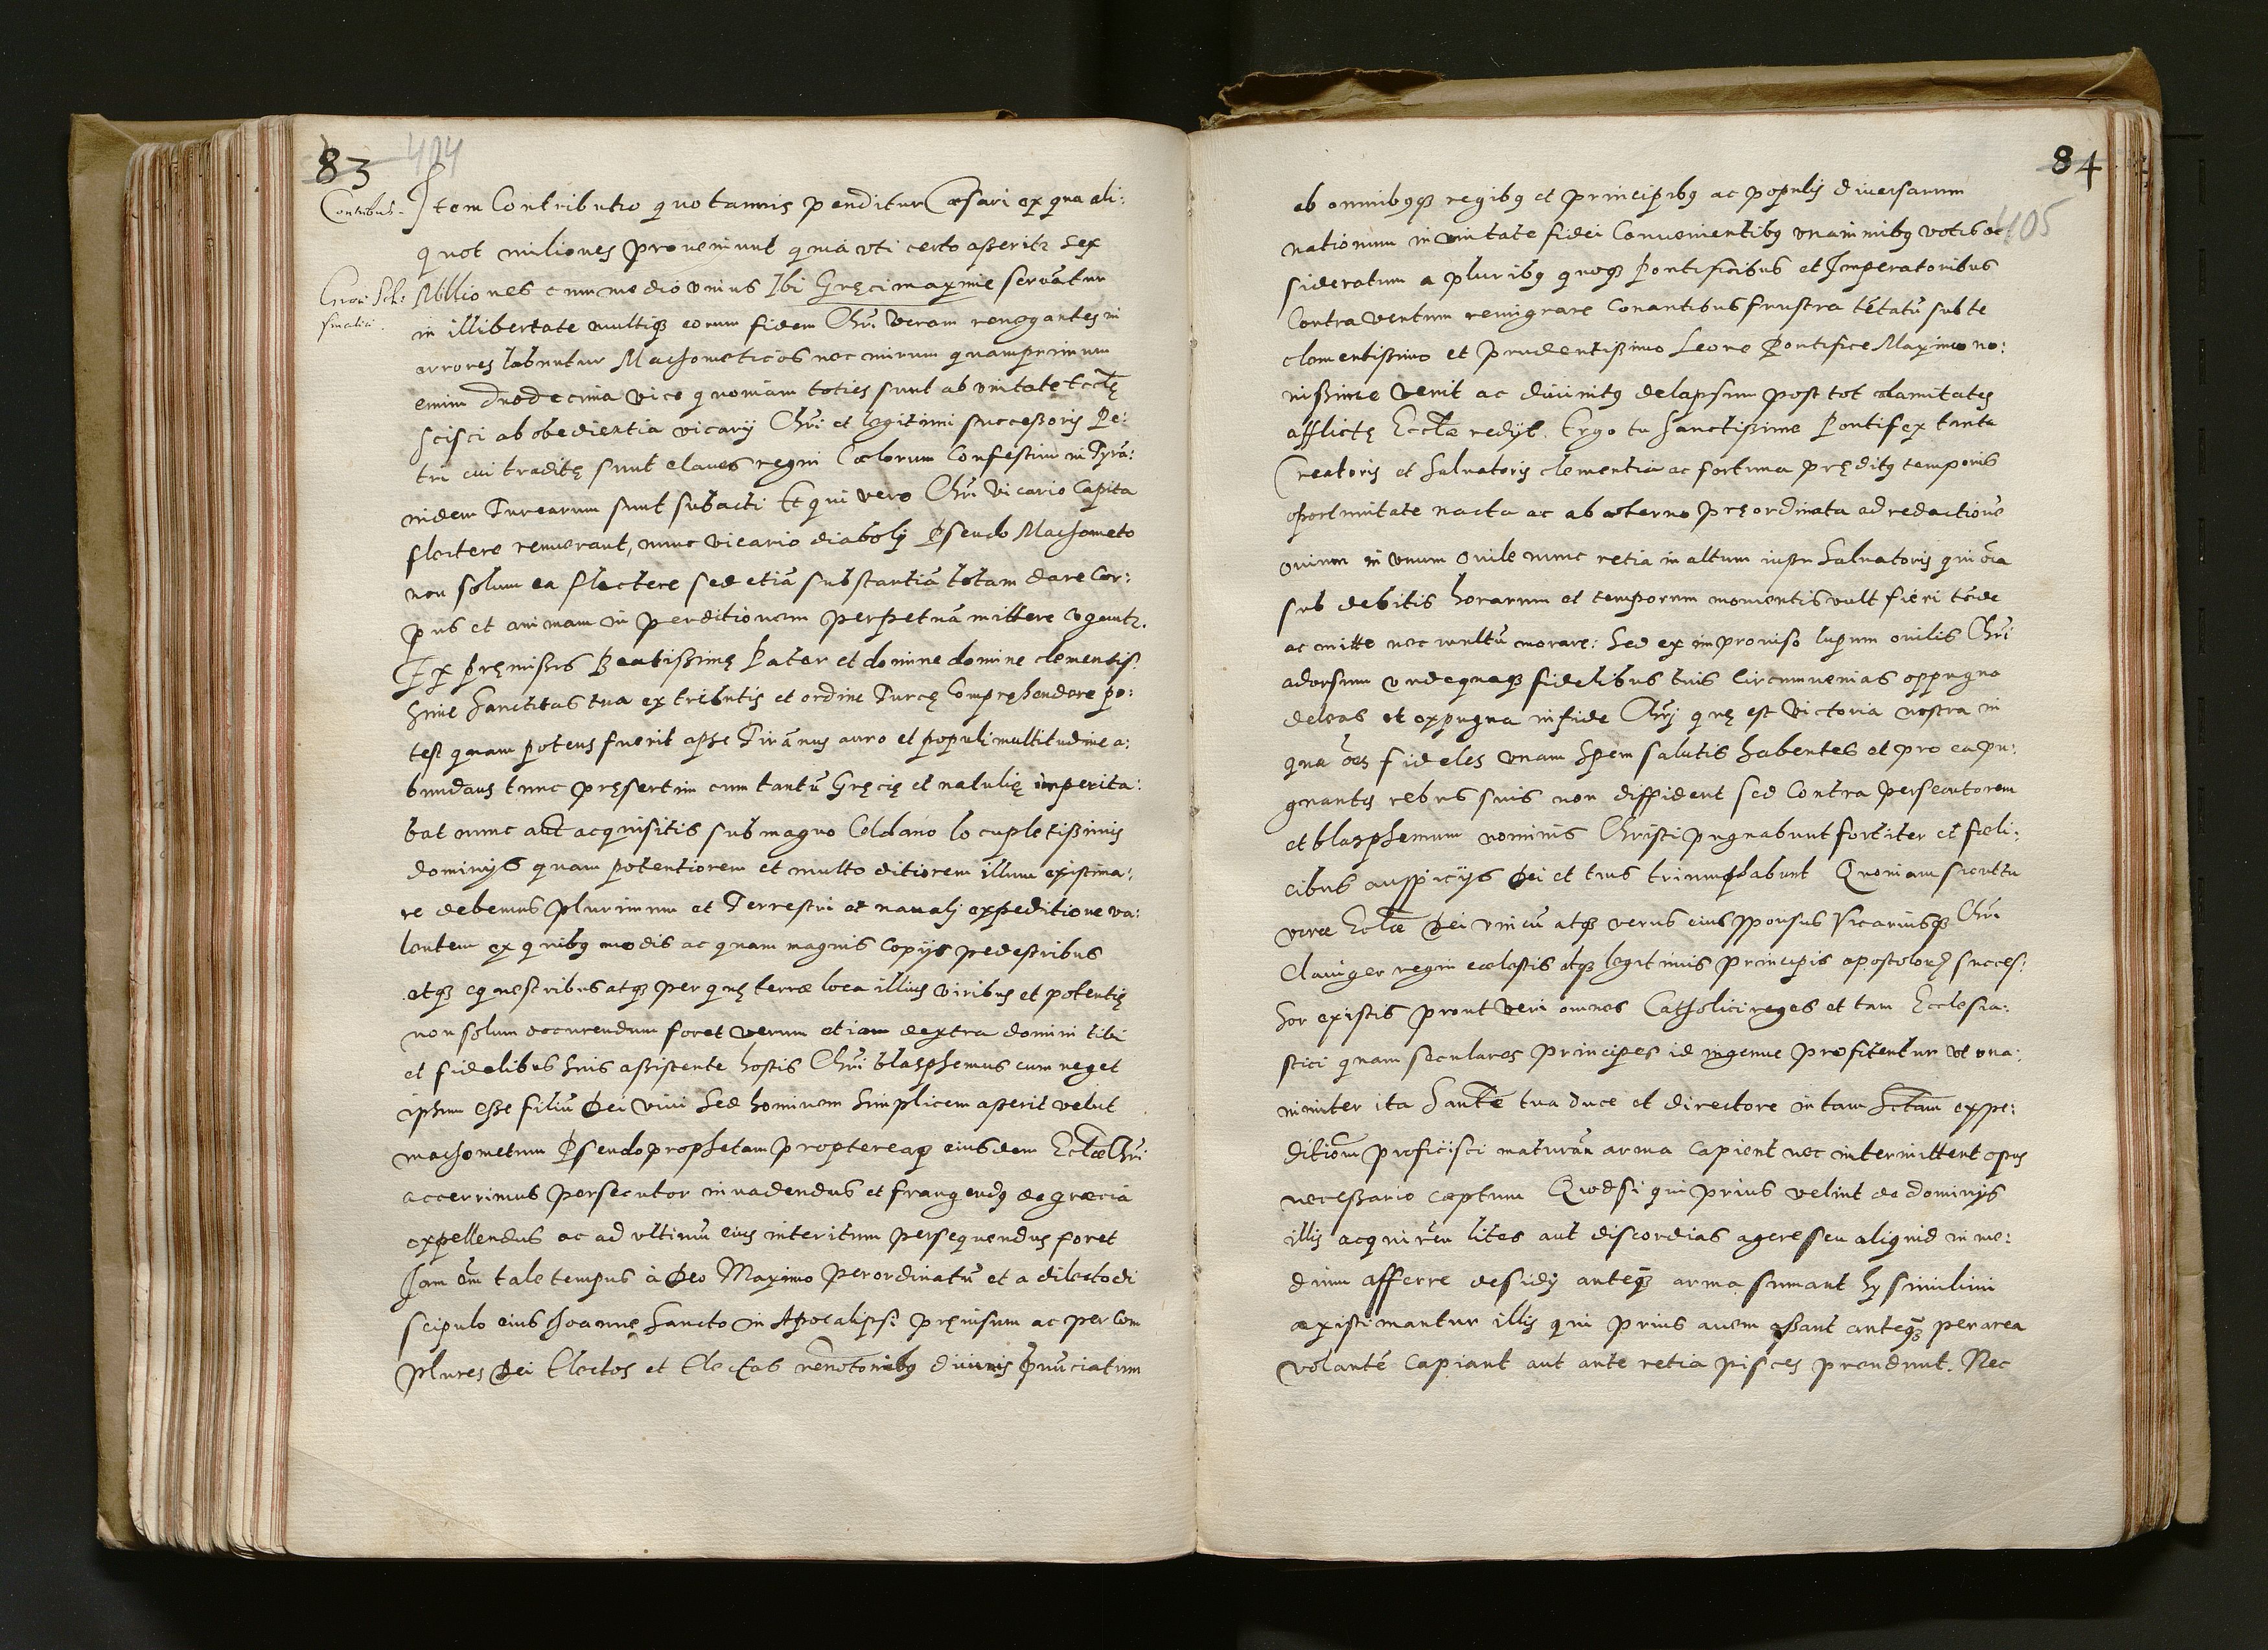 83 404
Contribut.
Item Contributio quotannis penditur Cæsari ex qua ali:
quot miliones proveniunt quia vti certo asseritr sex
Millione&s cum medio vnius Ibi Gręci maxime servãtur
Sch:
smatici
in illibertate multiqȝ eorum fidem Chri veram renegantes in
errores labuntur Machometicos nec mirum quamprimum
enim duodecima vice quoniam toties sunt ab vnitate Eccłę
scisci ab obedientia vicarij Chri et legitimi successoris Pe:
tri cui traditę sunt claues regni Cælorum Confestim in Tyrã:
nidem Turcarum sunt subacti Et qui vero Chri Vicario Capita
flectere renuerant, nunc vicario diaboli Pseudo Machometo
non solum ea flectere sed etiã substantiã totam dare Cor:
pus et animam in perditionem perpetuã mittere coguntr.
Ex pręmissis Beatissimę Pater et domine domine clementis:
sime Sanctitas tua ex tributis et ordine Turcę Compręhendere po:
test quam potens fuerit ipse Tirãnus auro et populi multitudine a:
bundans tunc pręsertim cum tantũ Gręcię et natulię imperita:
bat nunc aũt acquisitis sub magno Celdano locupletissimis
dominijs quam potentiorem et multo ditiorem illum existima:
re debemus plurimum et Terrestri et nauali expeditione va:
lentem ex quibȝ modis ac quam magnis copijs pedestribus
atqȝ equestribus atqȝ per quę terræ loca illius viribus et potentię
non solum occurendum foret verum etiam dextra domini tibi
et fidelibus suis assistente hostis Chri blasphemus cum neget
ipsum esse filiũ Dei viui Sed hominem simplicem asserit velut
machometum Pseudoprophetam proptereaqȝ eiusdem Eccłæ Chri
accerrimus persecutor inuadendus et frangendȝ de græcia
expellendus ac ad vltimũ eius interitum persequendus foret
Iam em̃ tale tempus à Deo Maximo perordinatũ et a dilecto di
scipulo eius Joannę Sancto in Apocalipsi pręuisum ac per Com
plures Dei Electos et Electas diuinis pnũciatum
84
405
ab omnibȝqȝ regibȝ et principibȝ ac populis diuersarum
nationum in vnitate fidei Conuenientibȝ vnanimibȝ votis de:
sideratum a pluribȝ quoqȝ Pontificibus et Imperatoribus
Contra ventum remigrare Conantibus frustra tẽtatũ sub te
clementissimo et prudentissimo Leone Pontifice Maximo no:
uissime venit ac diuinitȝ delapsum post tot calamitates
afflictę Eccłæ redijt. Ergo tu Sanctissime Pontifex tanta
Creatoris et Saluatoris clementia ac fortuna pręditȝ temporis
oportunitate nacta ac ab æterno pręordinata ad redactionẽ
ouium in vnum ouile nunc retia in altum iussu Saluatoris qui oĩa
sub debitis horarum et temporum momentis vult fieri tẽde
ac mitte nec multũ morare: Sed ex improuiso lupum ouilis Chri
adorsum vndequaqȝ fidelibus tuis Circumuenias oppugna
deleas et expugna in fide Chrj quę est victoria nostra in
qua oẽs fideles vnam spem salutis habentes et pro ea pu:
gnantes rebus suis non diffident sed Contra persecutorem
et blasphemum nominis Christi pugnabunt fortiter et fœli:
cibus auspicijs Dei et tuis triumphabunt Quoniam sicuti tu
veræ Eccłæ Dei vnicũ atqȝ verus eius sponsus Vicariusqȝ Chri
Clauiger regni cælestis atqȝ legitimus principis apostolorȝ succes:
sor existis prout veri omnes Catholici reges et tam Ecclesia:
stici quam seculares principes id ingenue profitentur vt vna:
nimiter ita Sancte tua duce et directore in tam Sctam expe:
ditiom proficisci maturãu arma capient nec intermittent opus
necessario cœptum Quodsi qui prius velint de dominijs
illis acquirẽn lites aut discordias agere seu aliquid in me:
dium afferre desidij anteqȝ arma sumant hj simillimi
æxistimantur illis qui prius auem assant anteqȝ per area
volantẽ capiant aut ante retia pisces prendunt. Nec